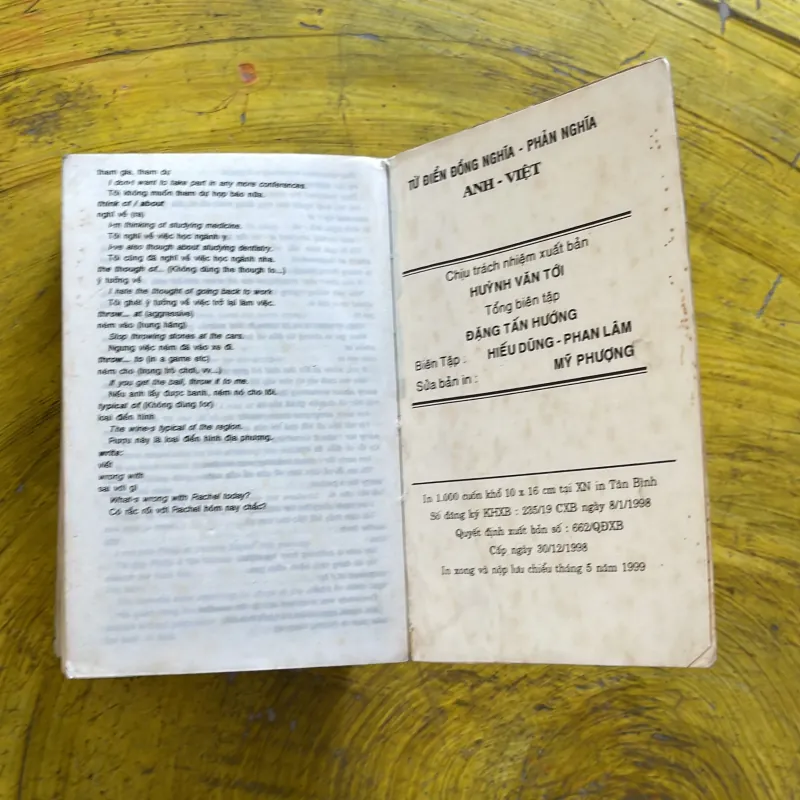 tham gia, tham dự
I don-t want to take part in any more conferences.
Tôi không muốn tham dự họp báo nữa.
think of / about
nghĩ về (ra)
I-m thinking of studying medicine.
Tôi nghĩ về việc học ngành y.
I-ve also though about studying dentistry.
Tôi cũng đã nghĩ về việc học ngành nha.
the though of... (Không dùng the though to...)
ý tưởng về
I hate the thought of going back to work
Tôi ghét ý tưởng về việc trở lại làm việc.
throw... at (aggressive)
ném vào (hung hăng)
Stop throwing stones at the cars.
Ngưng việc ném đá vào xe đi.
throw... to (in a game etc)
ném cho (trong trò chơi, vv...)
If you get the ball, throw it to me.
Nếu anh lấy được banh, ném nó cho tôi.
typical of (Không dùng for)
loại điển hình
The wine-s typical of the region.
Rượu này là loại điển hình địa phương.
write:
viết
wrong with
sai với gì
What-s wrong with Rachel today?
Có rắc rối với Rachel hôm nay chắc?
TỪ ĐIỂN ĐỒNG NGHĨA - PHẢN NGHĨA
ANH - VIỆT
Chịu trách nhiệm xuất bản
HUỲNH VĂN TỚI
Tổng biên tập
ĐẶNG TẤN HƯỚNG
Biên Tập : HIẾU DŨNG - PHAN LÂM
Sửa bản in : MỸ PHƯỢNG
In 1.000 cuốn khổ 10 x 16 cm tại XN in Tân Bình
Số đăng ký KHXB : 235/19 CXB ngày 8/1/1998
Quyết định xuất bản số : 662/QĐXB
Cấp ngày 30/12/1998
In xong và nộp lưu chiểu tháng 5 năm 1999